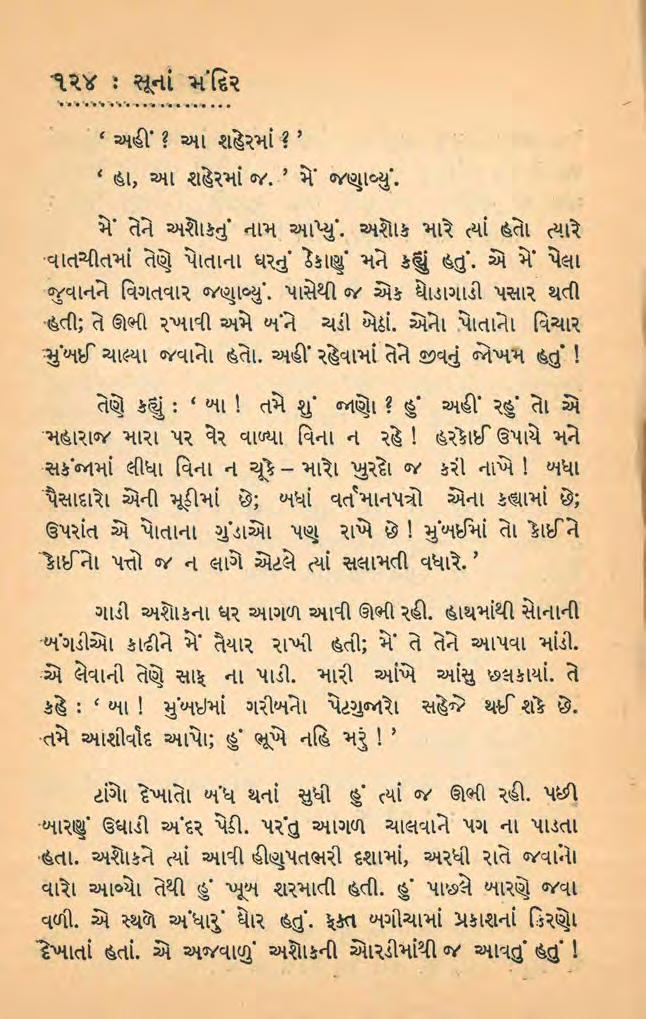 ૧૨૪ : સૂનાં મંદિર
‘ અહીં ? આ શહેરમાં ? ’
‘ હા, આ શહેરમાં જ. ’ મેં જણાવ્યું.
મેં તેને અશોકનું નામ આપ્યું. અશોક મારે ત્યાં હતો ત્યારે
વાતચીતમાં તેણે પોતાના ઘરનું ઠેકાણું મને કહ્યું હતું. એ મેં પેલા
જુવાનને વિગતવાર જણાવ્યું. પાસેથી જ એક ઘોડાગાડી પસાર થતી
હતી; તે ઊભી રખાવી અમે બંને ચડી બેઠાં. એનો પોતાનો વિચાર
મુંબઈ ચાલ્યા જવાનો હતો. અહીં રહેવામાં તેને જીવનું જોખમ હતું !
તેણે કહ્યું : ‘ બા ! તમે શું જાણો ? હું અહીં રહું તો એ
મહારાજ મારા પર વેર વાળ્યા વિના ન રહે ! હરકોઈ ઉપાયે મને
સકંજામાં લીધા વિના ન ચૂકે – મારો ખુરદો જ કરી નાખે ! બધા
પૈસાદારો એની મૂઠીમાં છે; બધાં વર્તમાનપત્રો એના કહ્યામાં છે;
ઉપરાંત એ પોતાના ગુંડાઓ પણ રાખે છે ! મુંબઈમાં તો કોઈને
કોઈનો પત્તો જ ન લાગે એટલે ત્યાં સલામતી વધારે. ’
ગાડી અશોકના ઘર આગળ આવી ઊભી રહી. હાથમાંથી સોનાની
બંગડીઓ કાઢીને મેં તૈયાર રાખી હતી; મેં તે તેને આપવા માંડી.
એ લેવાની તેણે સાફ ના પાડી. મારી આંખે આંસુ છલકાયાં. તે
કહે : ‘ બા ! મુંબઇમાં ગરીબનો પેટગુજારો સહેજે થઈ શકે છે.
તમે આશીર્વાદ આપો; હું ભૂખે નહિ મરું ! ’
ટાંગો દેખાતો બંધ થતાં સુધી હું ત્યાં જ ઊભી રહી. પછી
બારણું ઉઘાડી અંદર પેઠી. પરંતુ આગળ ચાલવાને પગ ના પાડતા
હતા. અશોકને ત્યાં આવી હીણપતભરી દશામાં, અરધી રાતે જવાનો
વારો આવ્યો તેથી હું ખૂબ શરમાતી હતી. હું પાછલે બારણે જવા
વળી. એ સ્થળે અંધારું ઘોર હતું. ફક્ત બગીચામાં પ્રકાશનાં કિરણો
દેખાતાં હતાં. એ અજવાળું અશોકની ઓરડીમાંથી જ આવતું હતું !